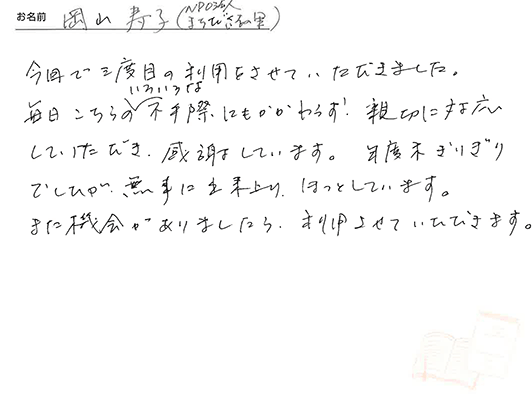 お名前 岡山 寿子 (NPO法人
まちびさ
今回で三度目の利用をさせていただきました。
いろいろな
毎日こちらの不手際にもかかわらず、親切に対応
していただき、感謝しています。年度末ぎりぎり
でしたが、無事に出来上り、ほっとしています。
また機会がありましたら、利用させていただきます。